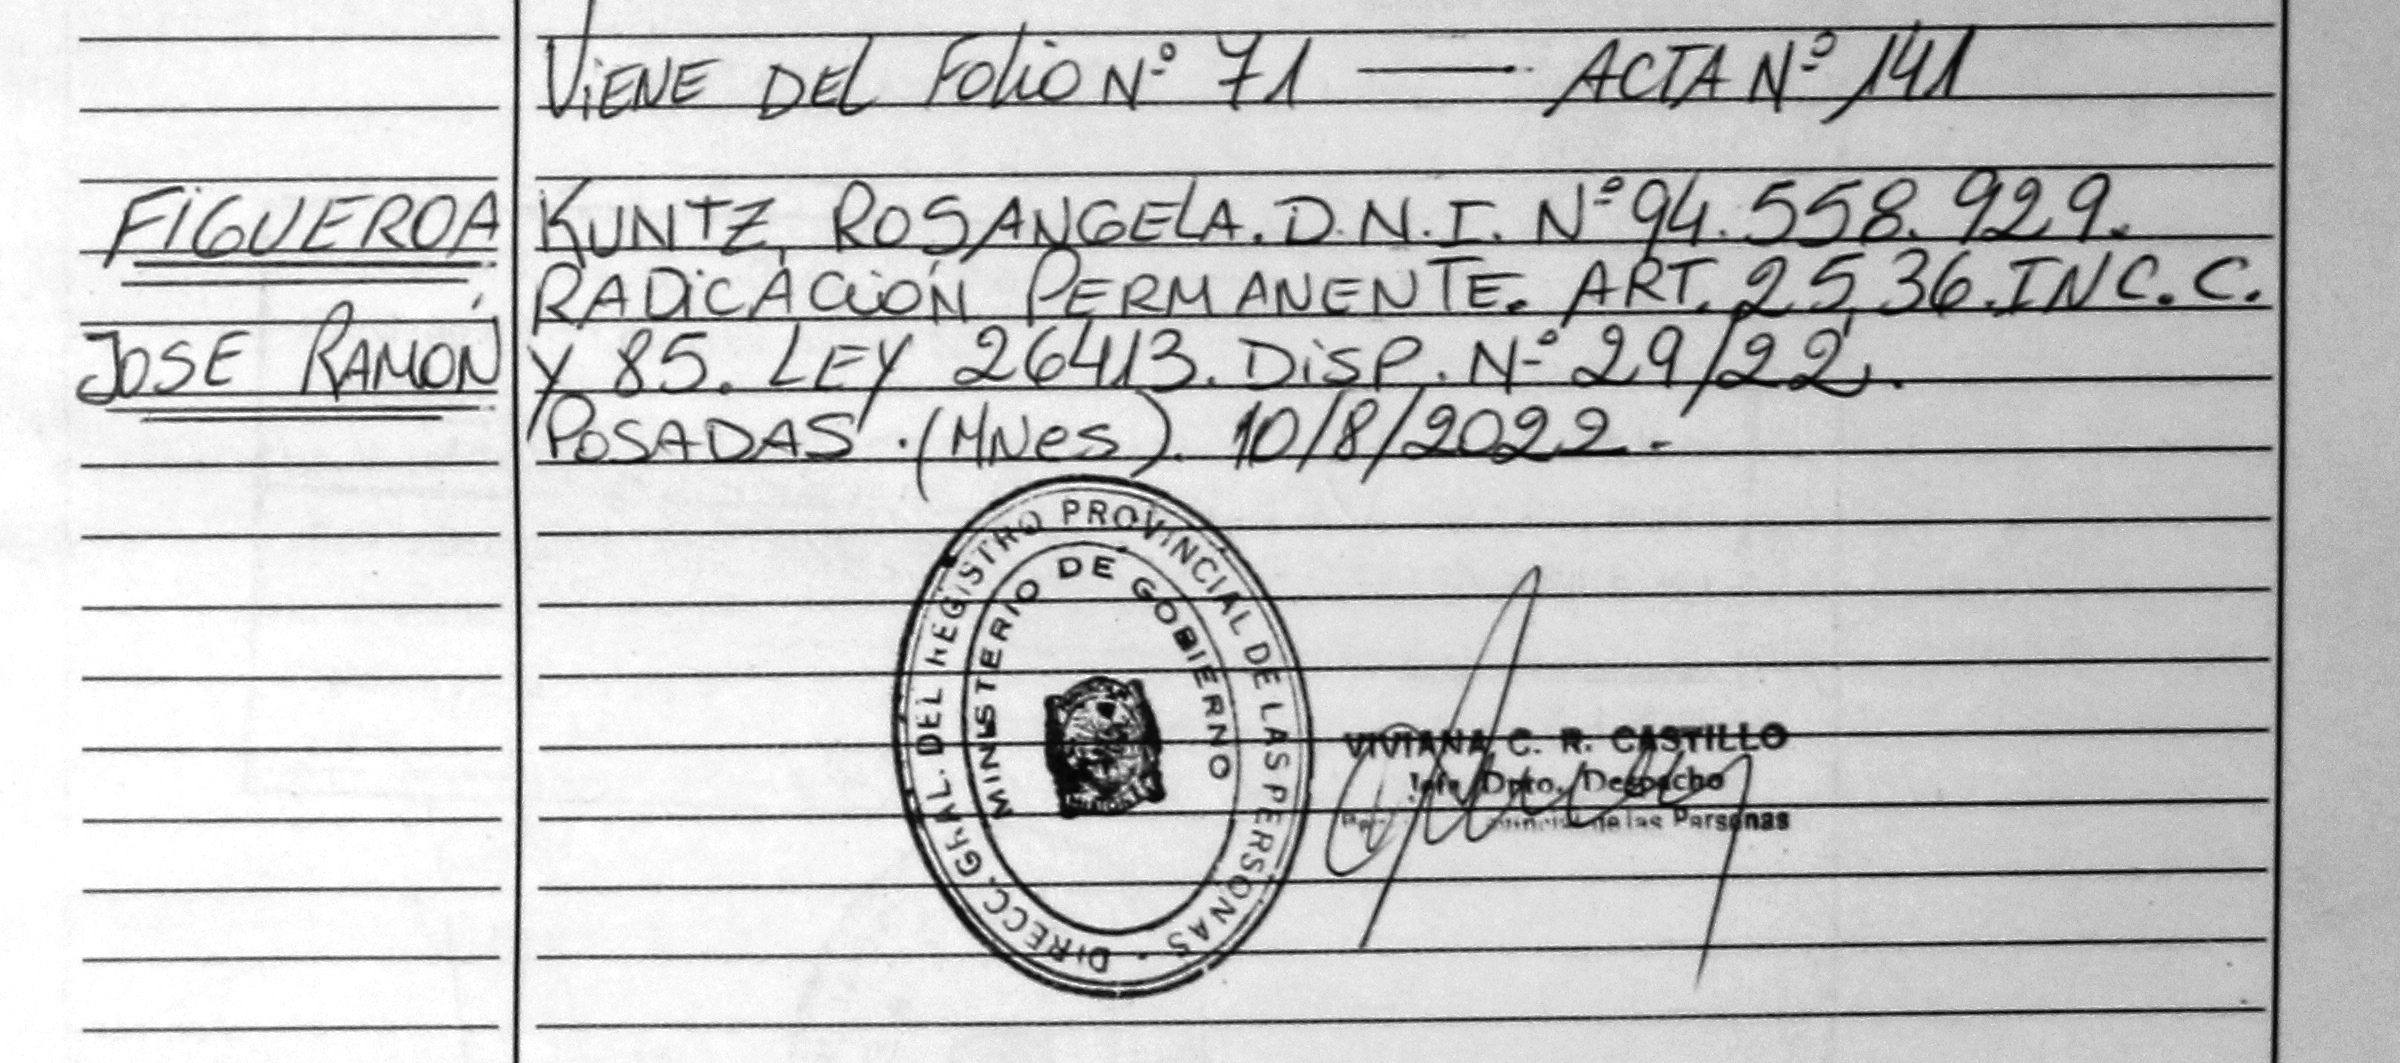 ViENE DEL FoliO Nº 71 —— ACTA Nº 141
FiGUEROA
JOSE RAMÓN
KUNTZ, ROSANGELA. D.N.I. Nº 94.558.929.
RADiCACiÓN PERMANENTE. ART. 25, 36. INC. C.
y 85. LEY 26413. DiSP. Nº 29/22.
POSADAS. (MNes). 10/8/2022.-
DIRECC. GRAL. DEL REGISTRO PROVINCIAL DE LAS PERSONAS
MINISTERIO DE GOBIERNO
VIVIANA C. R. CASTILLO
Jefe Dpto. Despacho
de las Personas